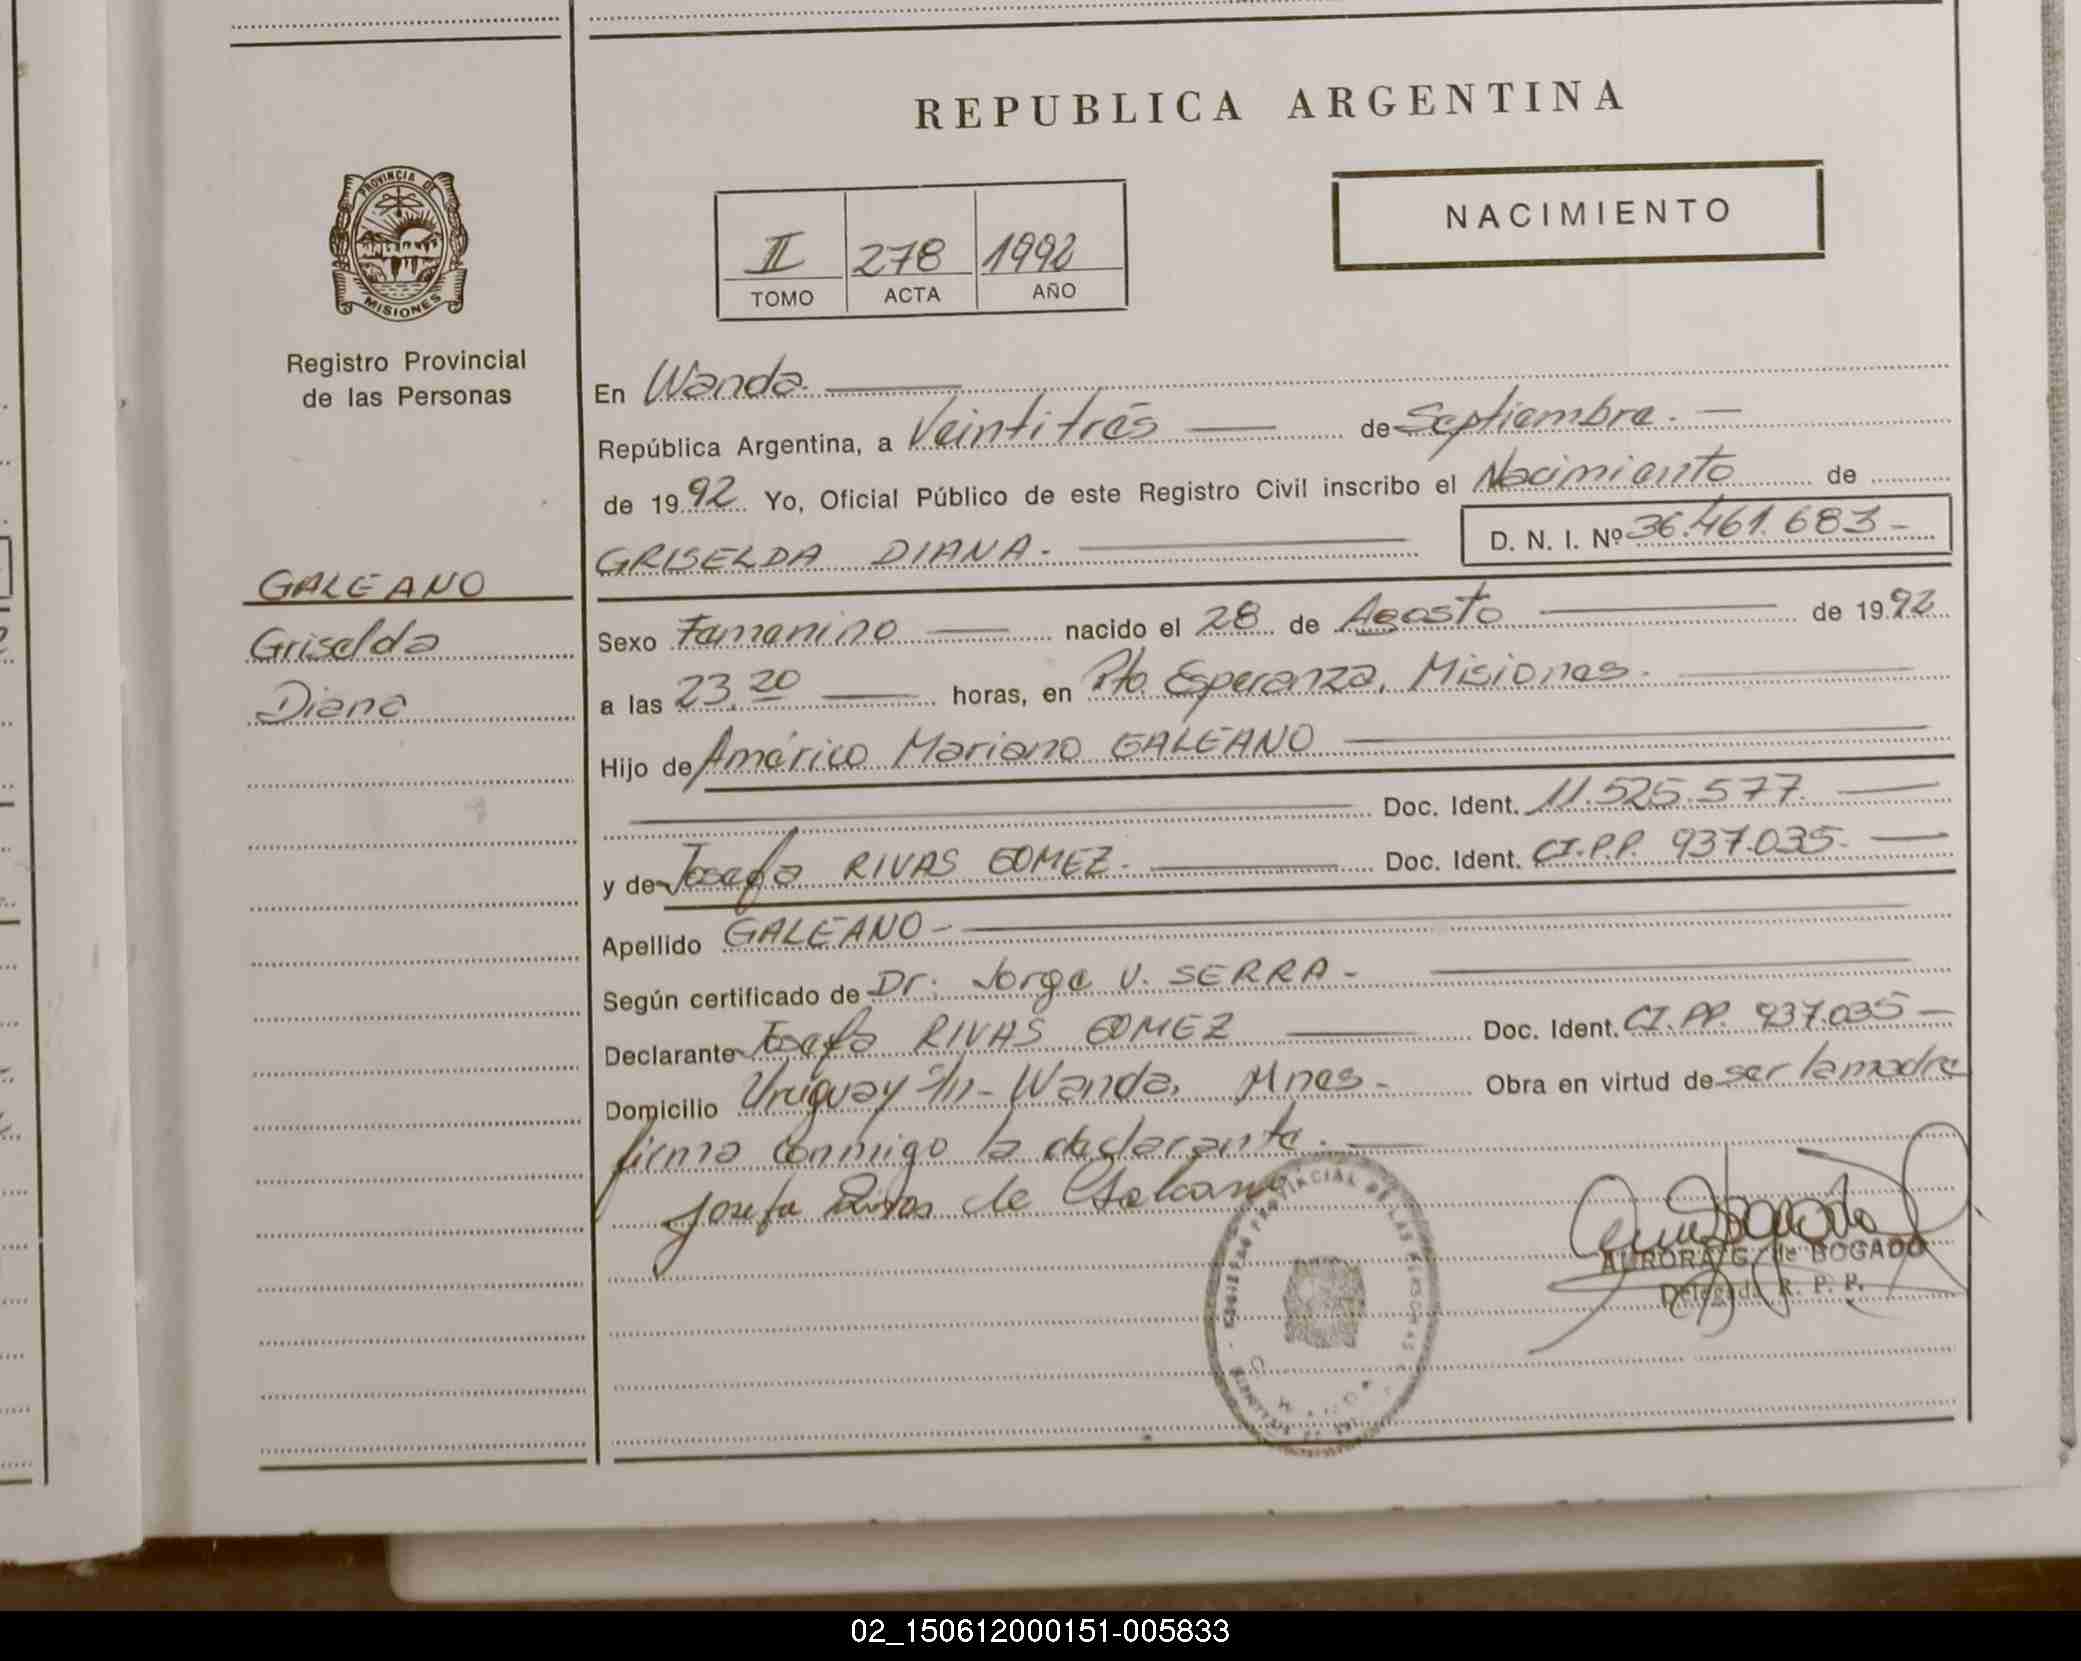 REPUBLICA ARGENTINA
PROVINCIA DE
MISIONES
Registro Provincial
de las Personas
NACIMIENTO
II 278 1992
TOMO ACTA AÑO
GALEANO
Griselda
Diana
En Wanda.
República Argentina, a Veintitrés de Septiembre.
de 1992 Yo, Oficial Público de este Registro Civil inscribo el Nacimiento de
GRISELDA DIANA. D. N. I. Nº 36.461.683
Sexo Femenino nacido el 28 de Agosto de 1992
a las 23.20 horas, en Pto. Esperanza, Misiones.
Hijo de Américo Mariano GALEANO
Doc. Ident. 11.525.577.
y de Josefa RIVAS GOMEZ. Doc. Ident. CI.P.P. 937.035.
Apellido GALEANO
Según certificado de Dr. Jorge V. SERRA
Declarante Josefa RIVAS GOMEZ Doc. Ident. CI.PP. 937.035
Domicilio Uruguay S/n - Wanda, Mnes. Obra en virtud de ser la madre
firma conmigo la declarante.
Josefa Rivas de Galeano
REGISTRO PROVINCIAL DE LAS PERSONAS
AURORA G. de BOGADO
Delegada R. P. P.
02_150612000151-005833